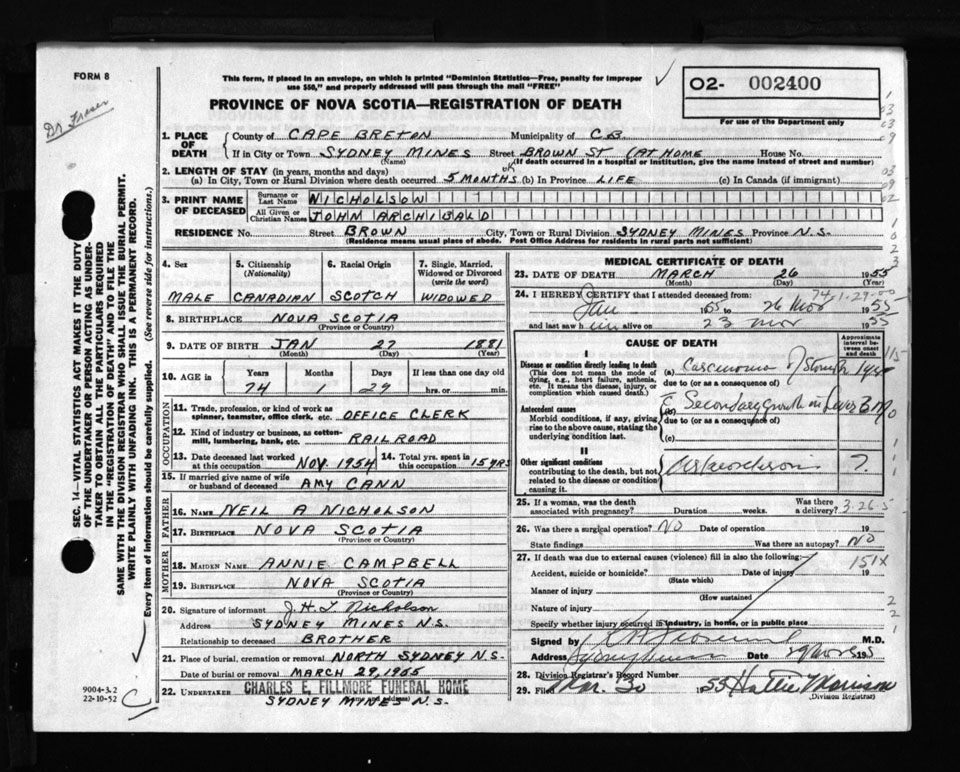 FORM 8
Dr Fraser
This form, if placed in an envelope, on which is printed "Dominion Statistics—Free, penalty for improper
use $50," and properly addressed will pass through the mail "FREE"
PROVINCE OF NOVA SCOTIA—REGISTRATION OF DEATH
O2- 002400
For use of the Department only
1. PLACE OF DEATH County of CAPE BRETON Municipality of C B
If in City or Town SYDNEY MINES Street BROWN ST (AT HOME House No.
(Name) (If death occurred in a hospital or institution, give the name instead of street and number)
2. LENGTH OF STAY (in years, months and days)
(a) In City, Town or Rural Division where death occurred 5 MONTHS (b) In Province LIFE (c) In Canada (if immigrant)
3. PRINT NAME OF DECEASED Surname or Last Name NICHOLSON
All Given or Christian Names JOHN ARCHIBALD
RESIDENCE No. Street BROWN City, Town or Rural Division SYDNEY MINES Province N.S.
(Residence means usual place of abode. Post Office Address for residents in rural parts not sufficient)
4. Sex MALE
5. Citizenship (Nationality) CANADIAN
6. Racial Origin SCOTCH
7. Single, Married, Widowed or Divorced (write the word) WIDOWED
8. BIRTHPLACE NOVA SCOTIA
(Province or Country)
9. DATE OF BIRTH JAN 27 1881
(Month) (Day) (Year)
10. AGE in Years Months Days If less than one day old
74 1 29 hrs. or min.
OCCUPATION
11. Trade, profession, or kind of work as spinner, teamster, office clerk, etc. OFFICE CLERK
12. Kind of industry or business, as cotton-mill, lumbering, bank, etc. RAILROAD
13. Date deceased last worked at this occupation NOV. 1954 14. Total yrs. spent in this occupation 15 YRS
15. If married give name of wife or husband of deceased AMY CANN
FATHER
16. NAME NEIL A NICHOLSON
17. BIRTHPLACE NOVA SCOTIA
(Province or Country)
MOTHER
18. MAIDEN NAME ANNIE CAMPBELL
19. BIRTHPLACE NOVA SCOTIA
(Province or Country)
20. Signature of informant J. H. Nicholson
Address SYDNEY MINES N.S.
Relationship to deceased BROTHER
21. Place of burial, cremation or removal NORTH SYDNEY N.S.
Date of burial or removal MARCH 29, 1955
22. UNDERTAKER CHARLES E. FILLMORE FUNERAL HOME
SYDNEY MINES N.S.
MEDICAL CERTIFICATE OF DEATH
23. DATE OF DEATH MARCH 26 1955
(Month) (Day) (Year)
24. I HEREBY CERTIFY that I attended deceased from: 74-1-29
Jan 1955 to 26 Mar 1955
and last saw him alive on 23 Mar 1955
CAUSE OF DEATH
Approximate interval between onset and death
I
Disease or condition directly leading to death
(This does not mean the mode of dying, e.g., heart failure, asthenia, etc. It means the disease, injury, or complication which caused death.)
(a) Carcinoma of Stomach 1 year
due to (or as a consequence of)
Antecedent causes
Morbid conditions, if any, giving rise to the above cause, stating the underlying condition last.
(b) Secondary growth in Liver 3 mo
due to (or as a consequence of)
(c)
II
Other significant conditions
contributing to the death, but not related to the disease or condition causing it.
?
25. If a woman, was the death associated with pregnancy? Duration weeks. Was there a delivery? 3-26-5
26. Was there a surgical operation? NO Date of operation 19
State findings Was there an autopsy? NO
27. If death was due to external causes (violence) fill in also the following:
151X
Accident, suicide or homicide? Date of injury 19
(State which)
Manner of injury
(How sustained)
Nature of injury
Specify whether injury occurred in industry, in home, or in public place
Signed by M.D.
Address Sydney Mines Date 29 Mar 1955
28. Division Registrar's Record Number
29. Filed Mar. 30 1955 Hattie Morrison
(Division Registrar)
SEC. 14—VITAL STATISTICS ACT MAKES IT THE DUTY
OF THE UNDERTAKER OR PERSON ACTING AS UNDER-
TAKER TO OBTAIN ALL THE PARTICULARS REQUIRED
IN THE "REGISTRATION OF DEATH" AND TO FILE THE
SAME WITH THE DIVISION REGISTRAR WHO SHALL ISSUE THE BURIAL PERMIT.
WRITE PLAINLY WITH UNFADING INK. THIS IS A PERMANENT RECORD.
Every item of information should be carefully supplied. (See reverse side for instructions.)
9004-3.2
22-10-52
C